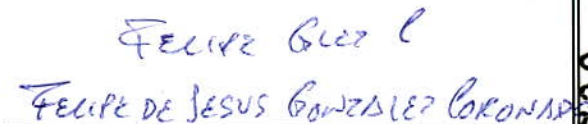 Felipe Glez C
FELIPE DE JESUS GONZALEZ CORONADO